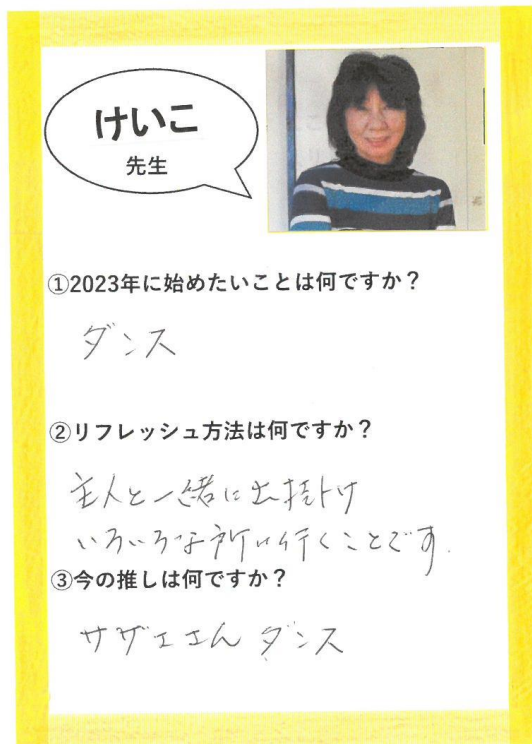 けいこ
先生
①2023年に始めたいことは何ですか？
ダンス
②リフレッシュ方法は何ですか？
主人と一緒に出掛け
いろいろな所に行くことです.
③今の推しは何ですか？
サザエさん ダンス